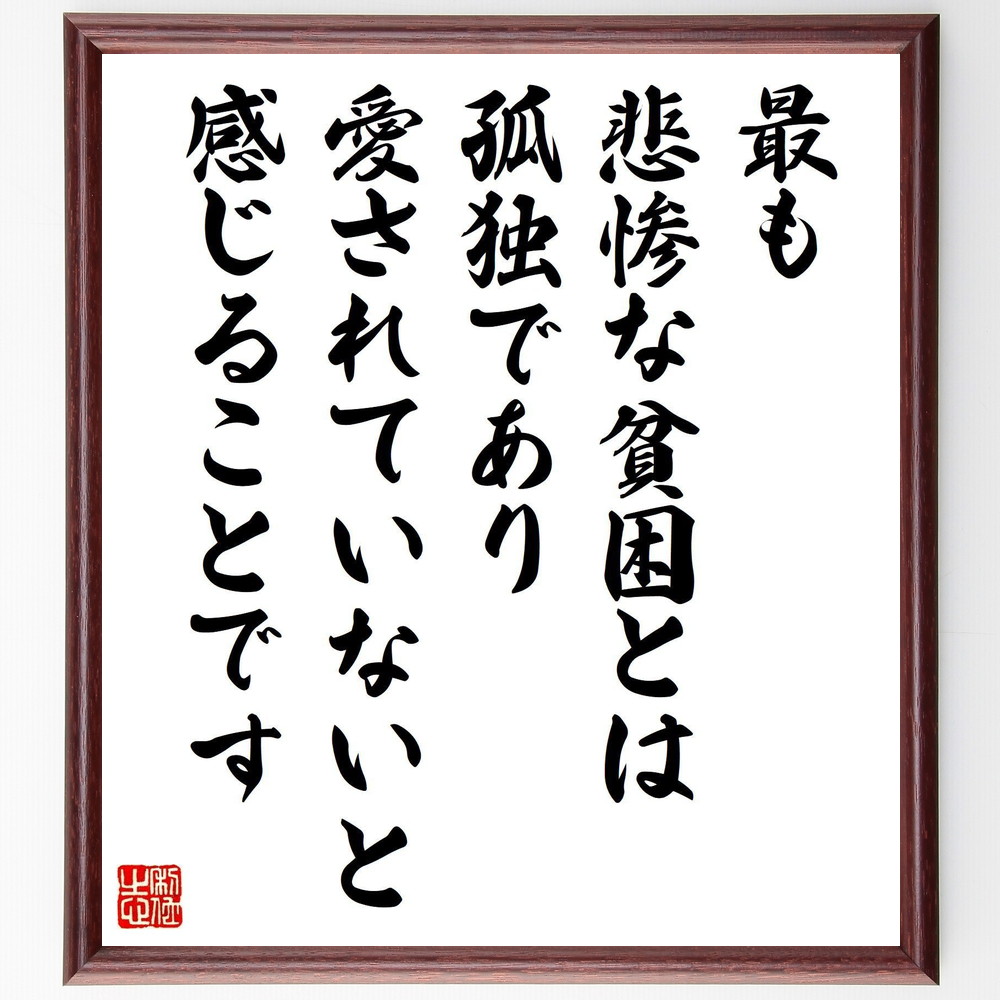 最も
悲惨な貧困とは
孤独であり
愛されていないと
感じることです